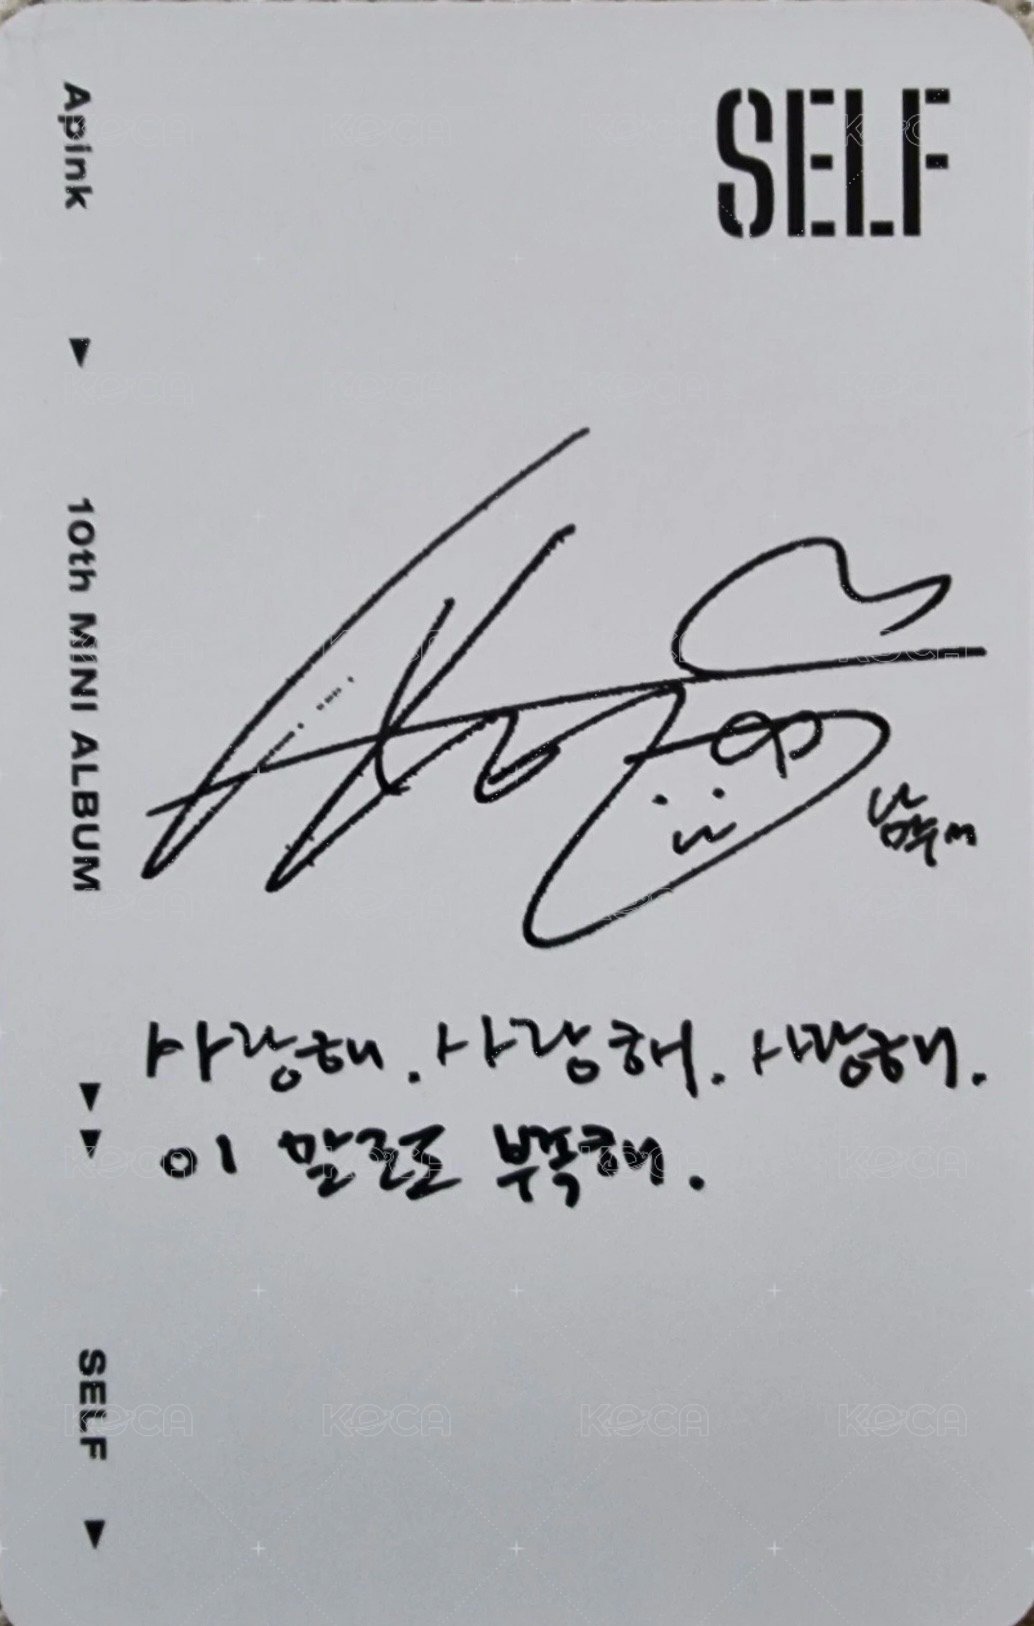 SELF
Apink
10th MINI ALBUM
사랑해. 사랑해. 사랑해.
이 말로도 부족해.
SELF
KOCA